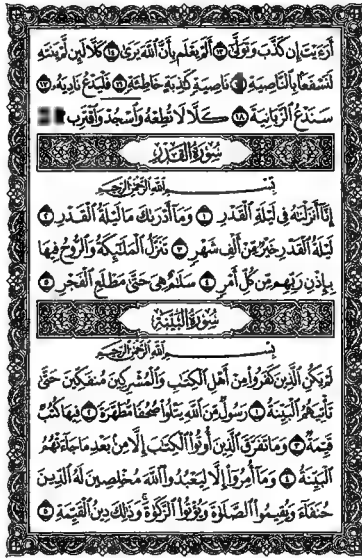 أَرَءَيْتَ إِن كَذَّبَ وَتَوَلَّىٰٓ ١٣ أَلَمْ يَعْلَم بِأَنَّ ٱللَّهَ يَرَىٰ ١٤ كَلَّا لَئِن لَّمْ يَنتَهِ
لَنَسْفَعًۢا بِٱلنَّاصِيَةِ نَاصِيَةٍۢ كَٰذِبَةٍ خَاطِئَةٍۢ ١٦ فَلْيَدْعُ نَادِيَهُۥ ١٧
سَنَدْعُ ٱلزَّبَانِيَةَ ١٨ كَلَّا لَا تُطِعْهُ وَٱسْجُدْ وَٱقْتَرِب
سُورَةُ ٱلْقَدْرِ
بِسْمِ ٱللَّهِ ٱلرَّحْمَٰنِ ٱلرَّحِيمِ
إِنَّآ أَنزَلْنَٰهُ فِى لَيْلَةِ ٱلْقَدْرِ ١ وَمَآ أَدْرَىٰكَ مَا لَيْلَةُ ٱلْقَدْرِ ٢
لَيْلَةُ ٱلْقَدْرِ خَيْرٌۭ مِّنْ أَلْفِ شَهْرٍۢ ٣ تَنَزَّلُ ٱلْمَلَٰٓئِكَةُ وَٱلرُّوحُ فِيهَا
بِإِذْنِ رَبِّهِم مِّن كُلِّ أَمْرٍۢ ٤ سَلَٰمٌ هِىَ حَتَّىٰ مَطْلَعِ ٱلْفَجْرِ ٥
سُورَةُ ٱلْبَيِّنَةِ
بِسْمِ ٱللَّهِ ٱلرَّحْمَٰنِ ٱلرَّحِيمِ
لَمْ يَكُنِ ٱلَّذِينَ كَفَرُوا۟ مِنْ أَهْلِ ٱلْكِتَٰبِ وَٱلْمُشْرِكِينَ مُنفَكِّينَ حَتَّىٰ
تَأْتِيَهُمُ ٱلْبَيِّنَةُ ١ رَسُولٌۭ مِّنَ ٱللَّهِ يَتْلُوا۟ صُحُفًۭا مُّطَهَّرَةًۭ ٢ فِيهَا كُتُبٌۭ
قَيِّمَةٌۭ ٣ وَمَا تَفَرَّقَ ٱلَّذِينَ أُوتُوا۟ ٱلْكِتَٰبَ إِلَّا مِنۢ بَعْدِ مَا جَآءَتْهُمُ
ٱلْبَيِّنَةُ ٤ وَمَآ أُمِرُوٓا۟ إِلَّا لِيَعْبُدُوا۟ ٱللَّهَ مُخْلِصِينَ لَهُ ٱلدِّينَ
حُنَفَآءَ وَيُقِيمُوا۟ ٱلصَّلَوٰةَ وَيُؤْتُوا۟ ٱلزَّكَوٰةَ ۚ وَذَٰلِكَ دِينُ ٱلْقَيِّمَةِ ٥